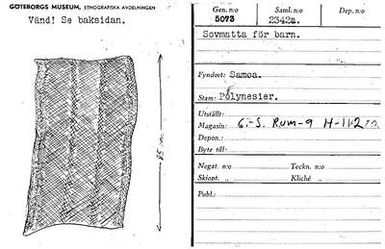 GÖTEBORGS MUSEUM, ETNOGRAFISKA AVDELNINGEN
Vänd! Se baksidan.
Gen. n:o
5073
Saml. n:o
2342a.
Dep. n:o
Sovmatta för barn.
Fyndort: Samoa.
Stam: Polynesier.
Utställt:
Magasin: 6.-S. Rum-9 H-112
Depon.:
Byte till:
Negat. n:o
Teckn. n:o
Skiopt.
Kliché
Publ.: